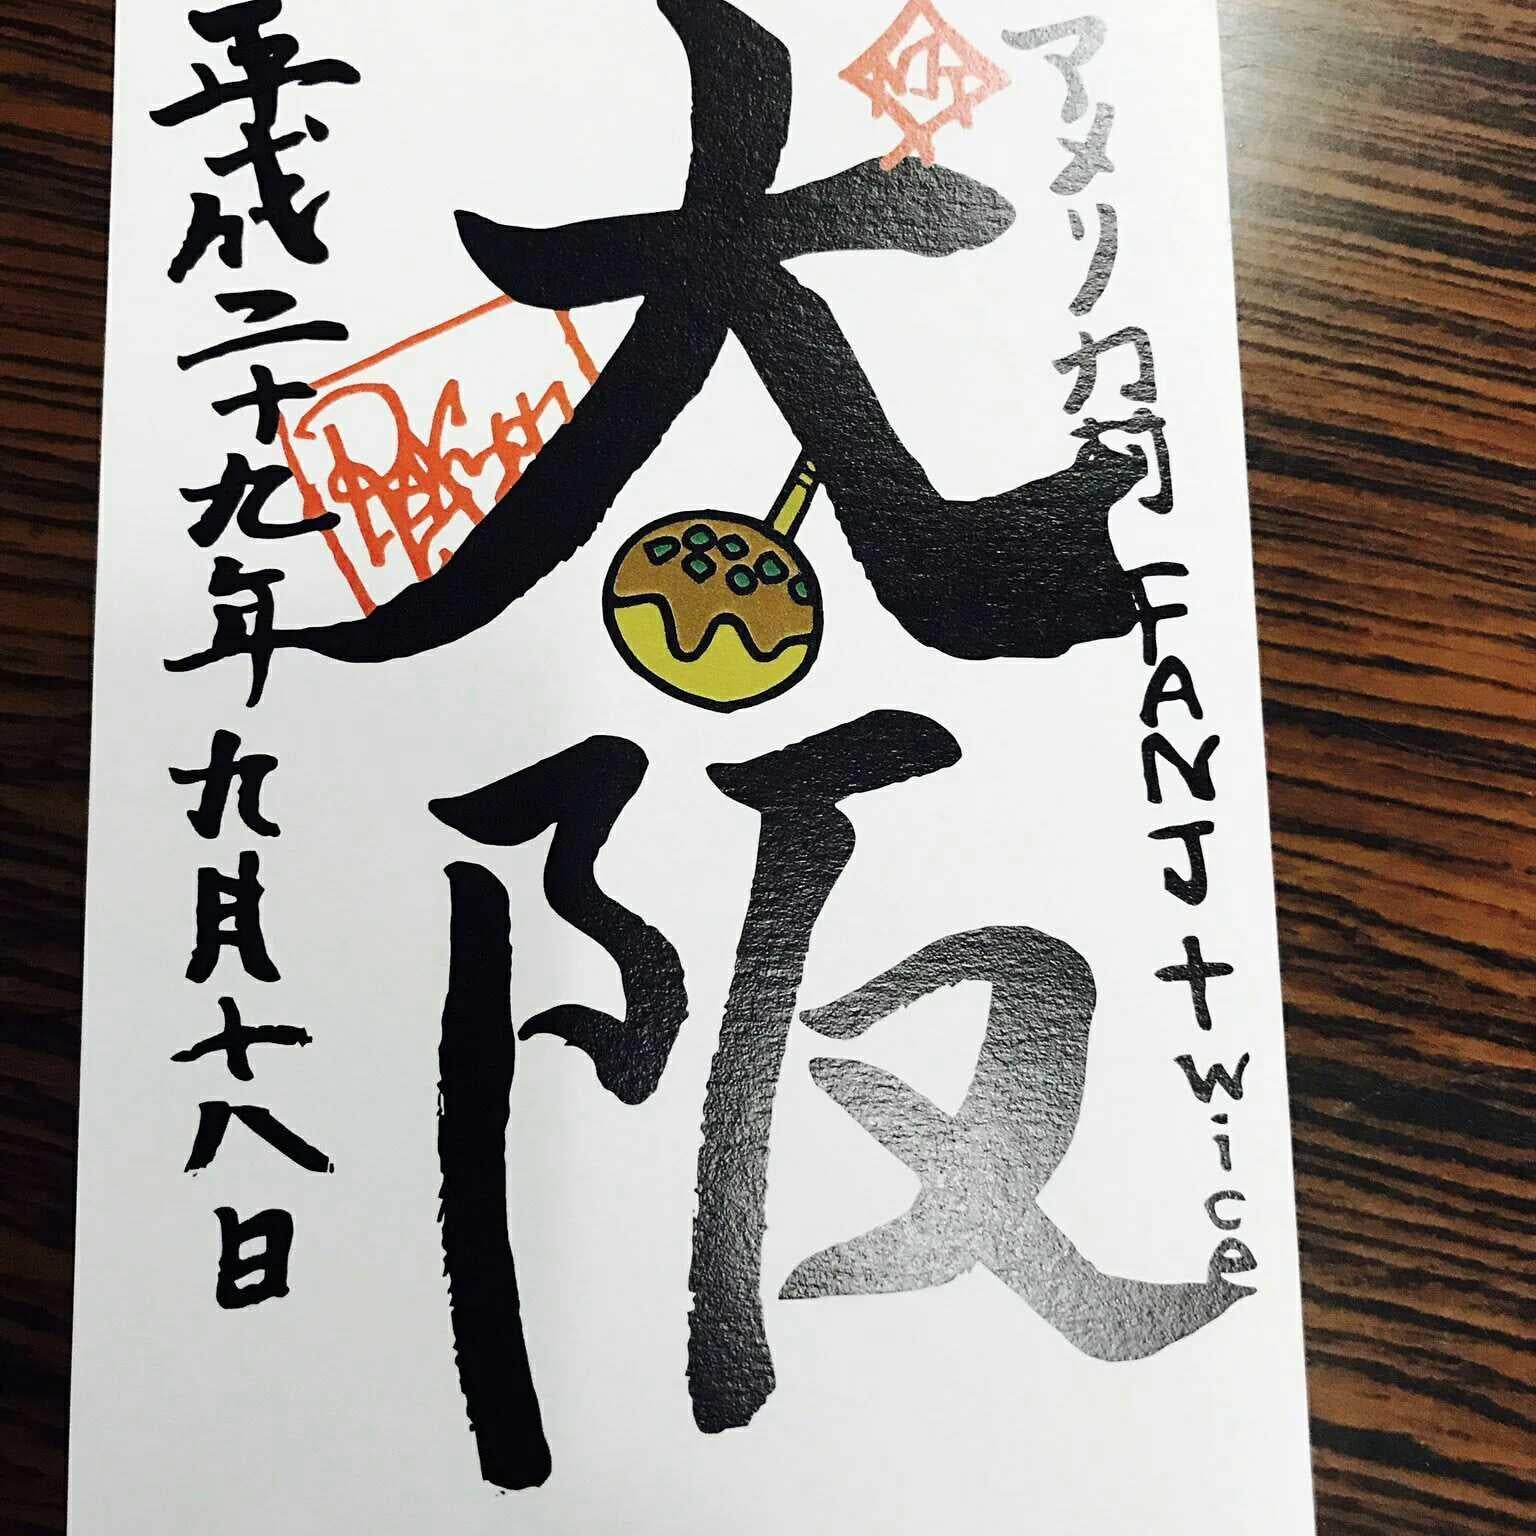 アメリカ村 FANJ twice
大阪
平成二十九年九月十八日